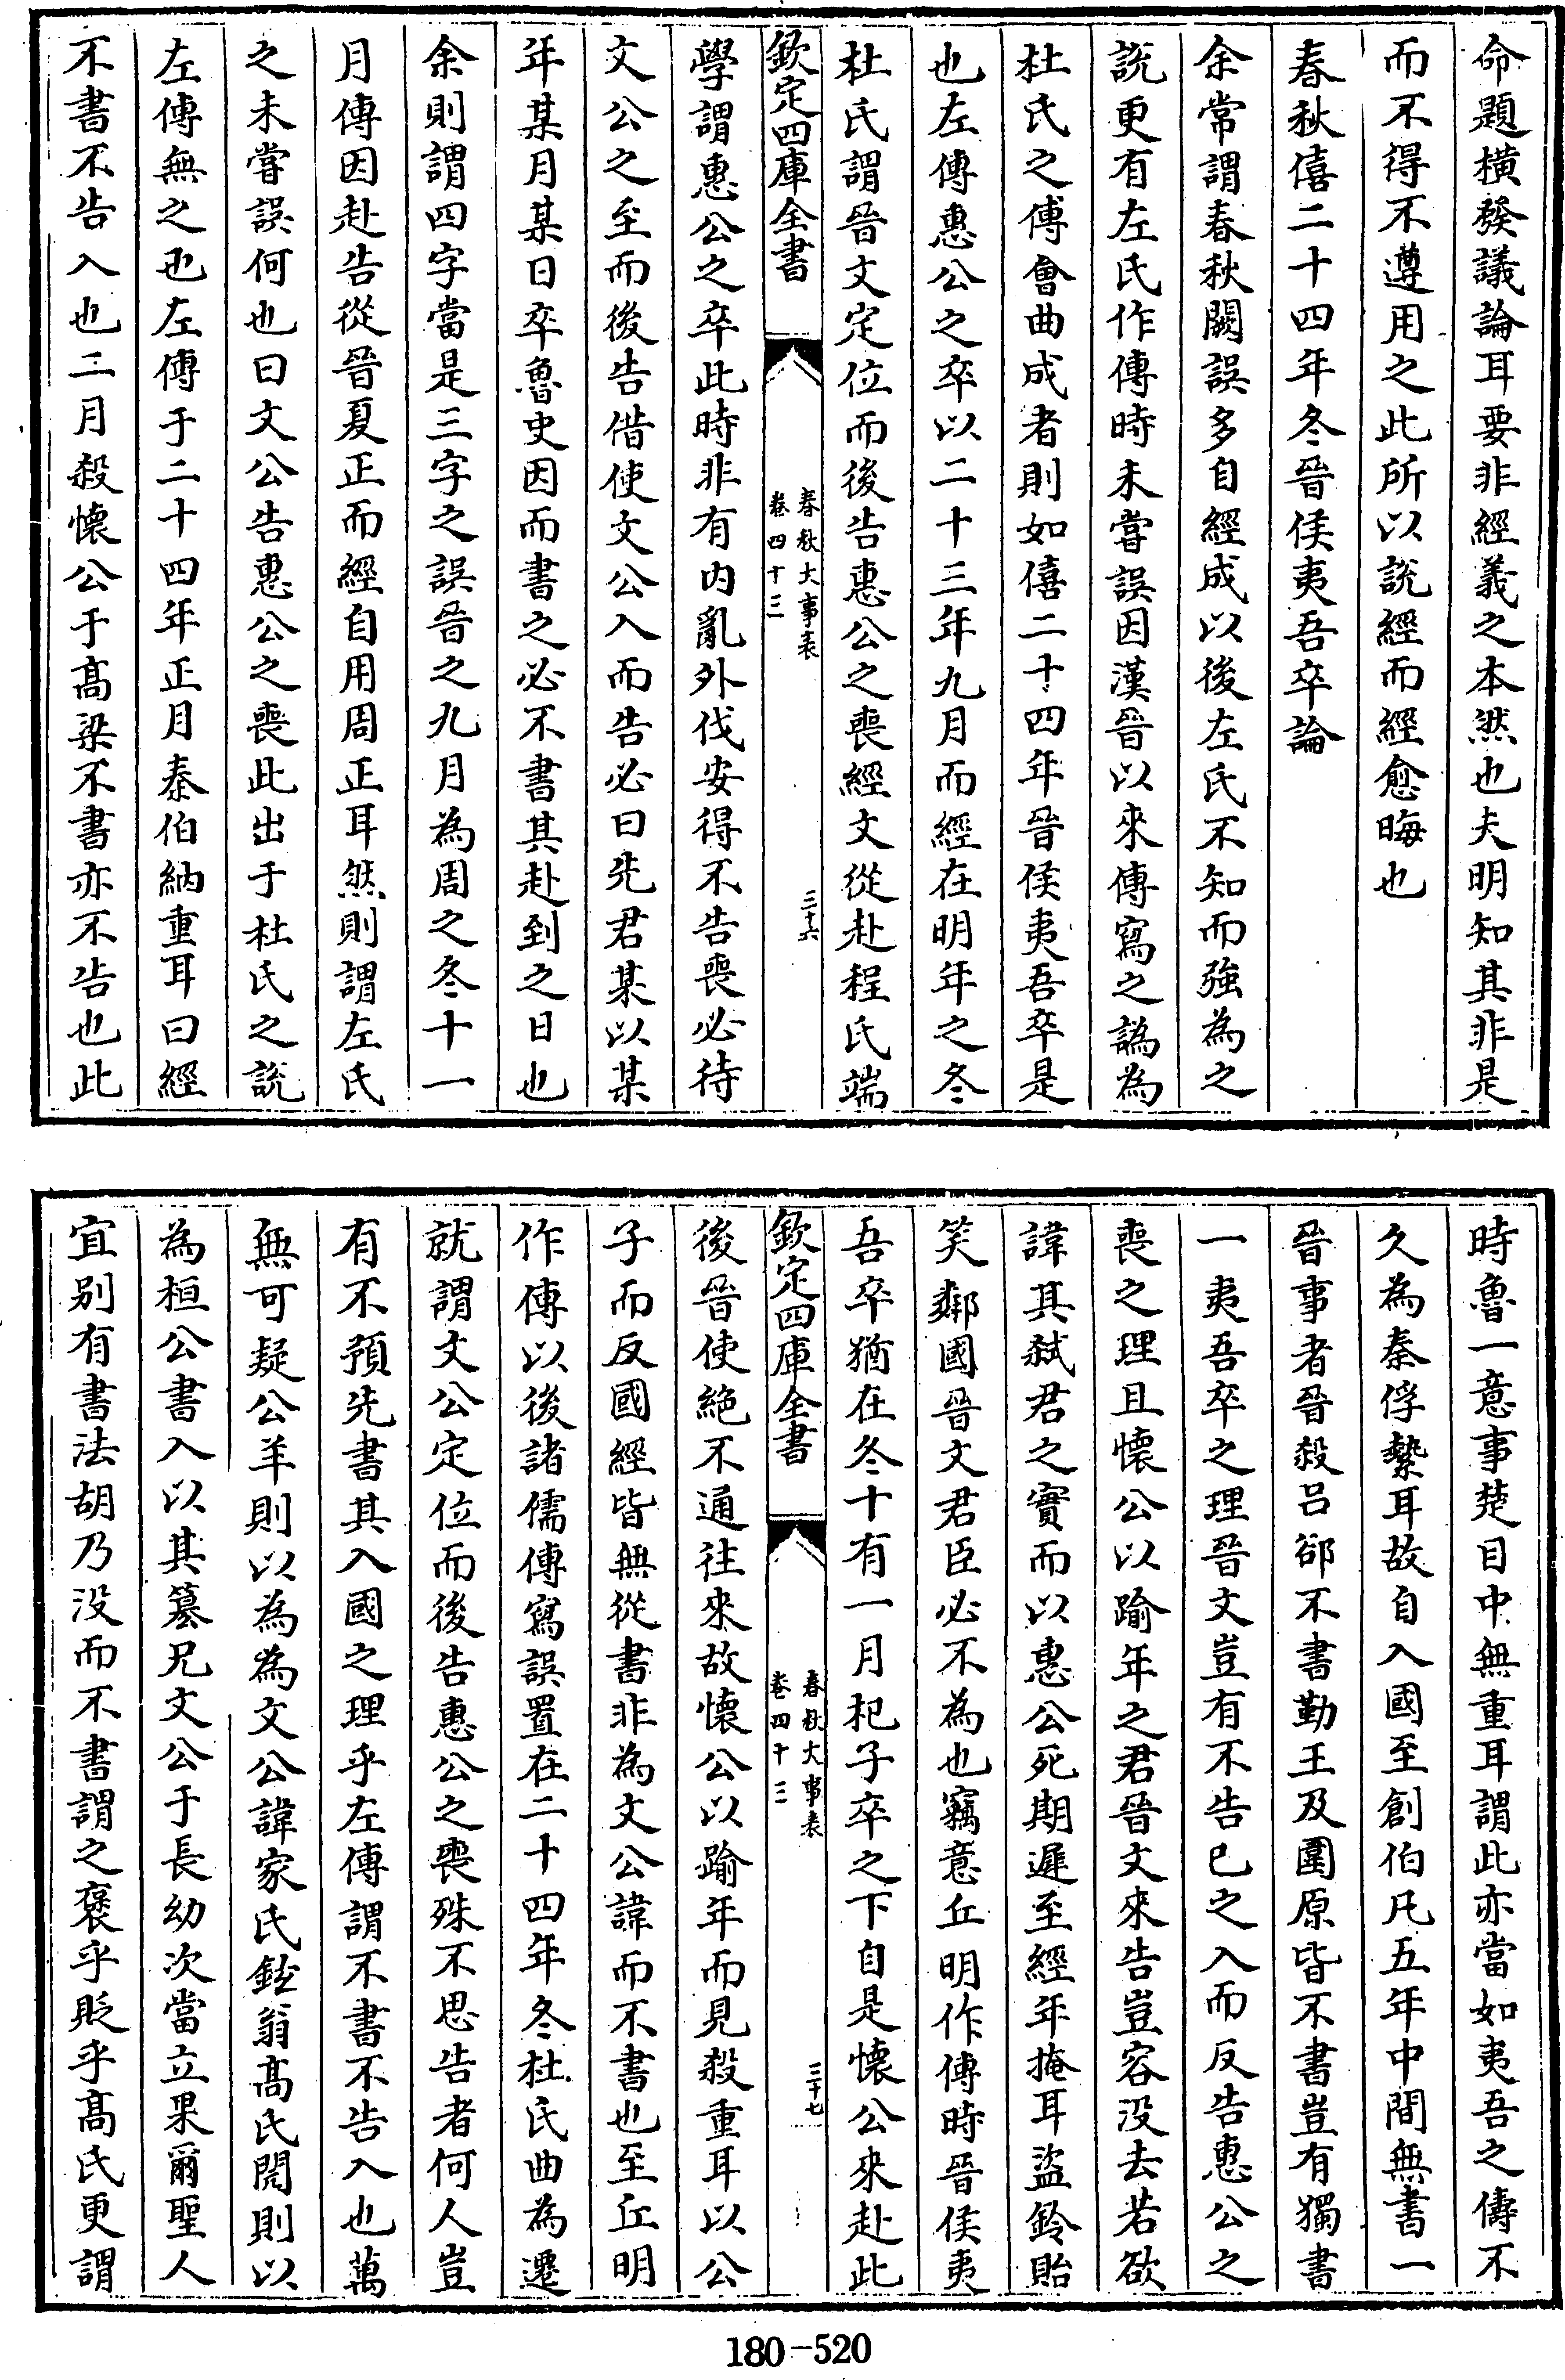 命題橫發議論耳要非經義之本然也夫明知其非是
而不得不遵用之此所以說經而經愈晦也
春秋僖二十四年冬晉侯夷吾卒論
余常謂春秋闕誤多自經成以後左氏不知而強為之
說更有左氏作傳時未嘗誤因漢晉以來傳寫之譌為
杜氏之傅會曲成者則如僖二十四年晉侯夷吾卒是
也左傳惠公之卒以二十三年九月而經在明年之冬
杜氏謂晉文定位而後告惠公之喪經文從赴程氏端
欽定四庫全書
春秋大事表
卷四十三
三十六
學謂惠公之卒此時非有内亂外伐安得不告喪必待
文公之至而後告偕使文公入而告必曰先君某以某
年某月某日卒魯史因而書之必不書其赴到之日也
余則謂四字當是三字之誤晉之九月為周之冬十一
月傳因赴告從晉夏正而經自用周正耳然則謂左氏
之未嘗誤何也曰文公告惠公之喪此出于杜氏之說
左傳無之也左傳于二十四年正月秦伯納重耳曰經
不書不告入也二月殺懷公于高梁不書亦不告也此
時魯一意事楚目中無重耳謂此亦當如夷吾之儔不
久為秦俘縶耳故自入國至創伯凡五年中間無書一
晉事者晉殺呂郤不書勤王及圍原皆不書豈有獨書
一夷吾卒之理晉文豈有不告已之入而反告惠公之
喪之理且懷公以踰年之君晉文來告豈容没去若欲
諱其弒君之實而以惠公死期遲至經年掩耳盜鈴貽
笑鄰國晉文君臣必不為也竊意丘明作傳時晉侯夷
吾卒猶在冬十有一月杞子卒之下自是懷公來赴此
欽定四庫全書
春秋大事表
卷四十三
三十七
後晉使絶不通往來故懷公以踰年而見殺重耳以公
子而反國經皆無從書非為文公諱而不書也至丘明
作傳以後諸儒傳寫誤置在二十四年冬杜氏曲為遷
就謂文公定位而後告惠公之喪殊不思告者何人豈
有不預先書其入國之理乎左傳謂不書不告入也萬
無可疑公羊則以為為文公諱家氏鉉翁高氏閌則以
為桓公書入以其簒兄文公于長幼次當立果爾聖人
宜别有書法胡乃没而不書謂之褒乎貶乎高氏更謂
180-520